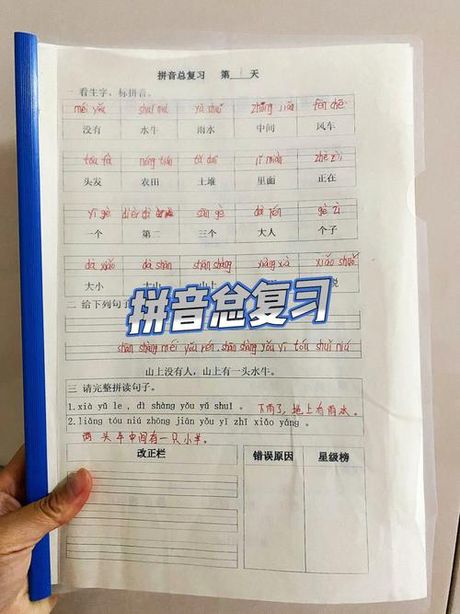 拼音总复习 第 1 天
一 看生字，标拼音。
méi yǒu shuǐ niú yǔ shuǐ zhōng jiān fēng chē
没有 水牛 雨水 中间 风车
tóu fà nóng tián tǔ duī lǐ miàn zhèng zài
头发 农田 土堆 里面 正在
yí gè dì èr sān gè dà rén gè zi
一个 第二 三个 大人 个子
dà xiǎo dà shān shān shàng xiǎo shuō
大小 大山 山上 说
拼音总复习
二 给下列句子
shān shàng méi yǒu rén, shān shàng yǒu yì tóu shuǐ niú
山上没有人，山上有一头水牛。
三 请完整拼读句子。
1.xià yǔ le , dì shàng yǒu yǔ shuǐ . 下雨了,地上有雨水.
2.liǎng tóu niú zhōng jiān yǒu yī zhī xiǎo yáng .
两头牛中间有一只小羊.
改正栏 错误原因 星级榜